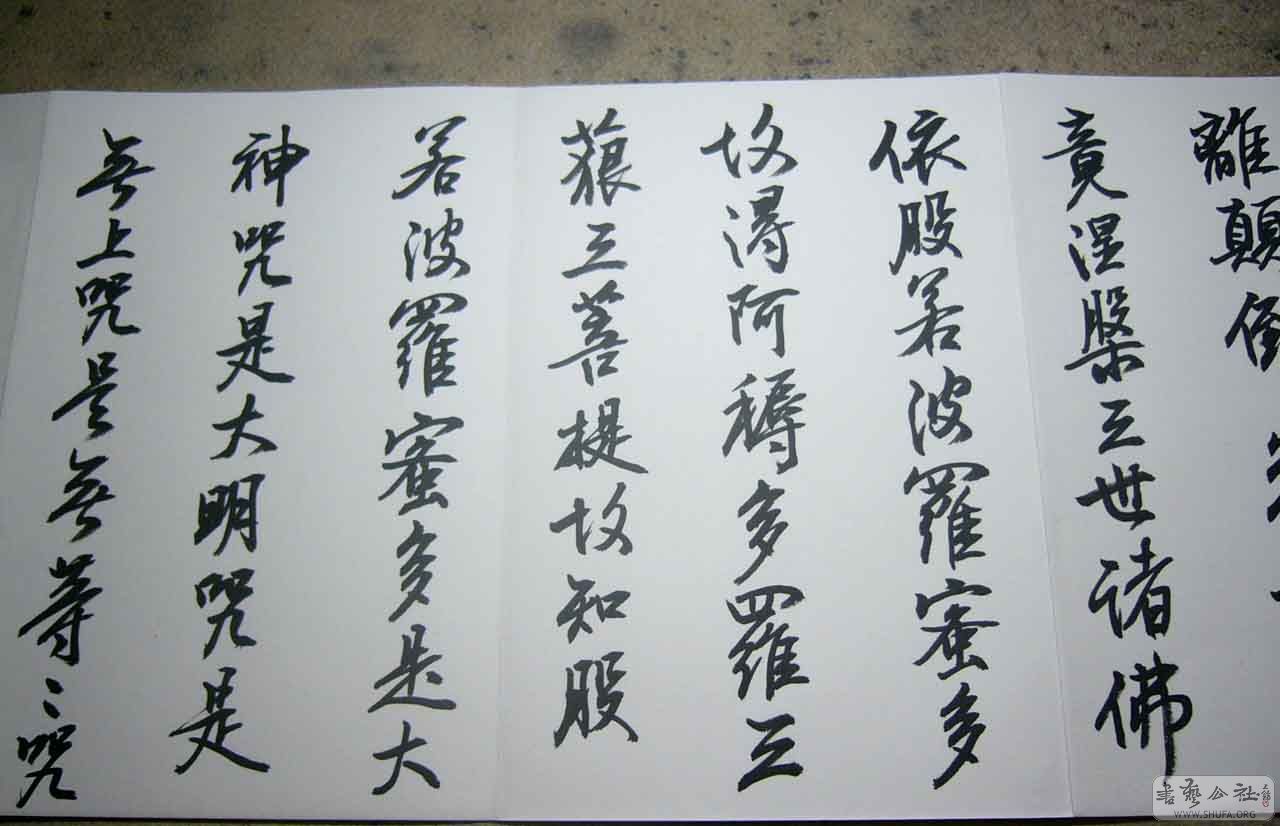 離顛倒
竟涅槃三世諸佛
依般若波羅蜜多
故得阿耨多羅三
藐三菩提故知般
若波羅蜜多是大
神咒是大明咒是
無上咒是無等〻咒
書藝公社
WWW.SHUFA.ORG